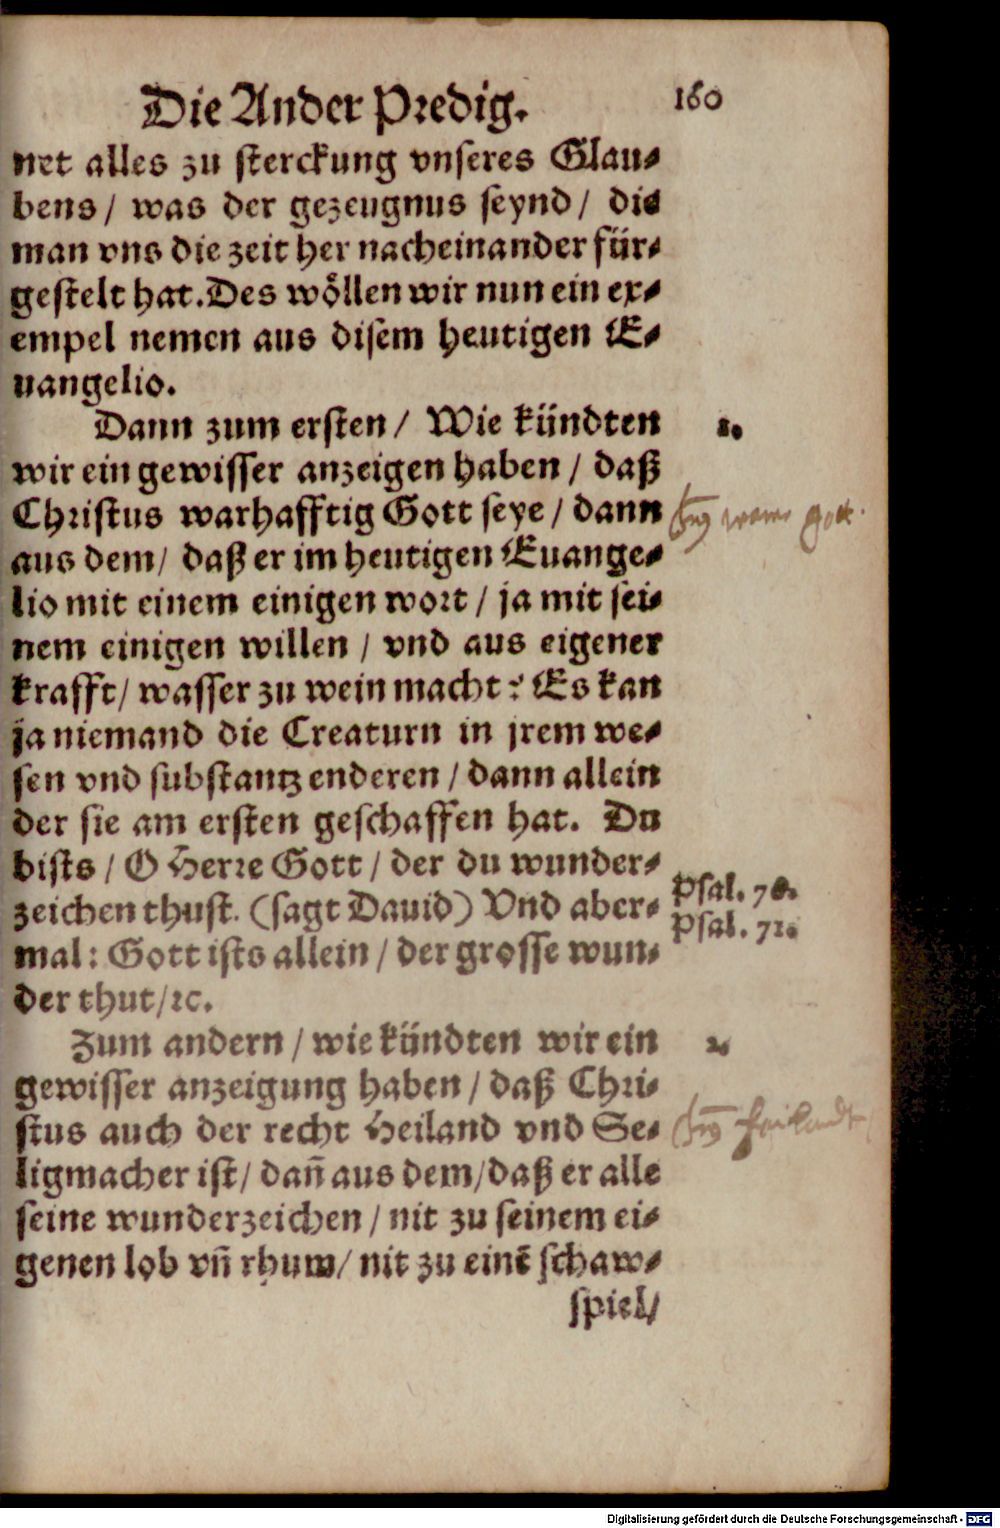 Die Ander Predig. 160
net alles zu sterckung vnseres Glau-
bens / was der gezeugnus seynd / die
man vns die zeit her nacheinander für-
gestelt hat. Des wöllen wir nun ein ex-
empel nemen aus disem heutigen E-
uangelio.
Dann zum ersten / Wie kündten 1.
wir ein gewisser anzeigen haben / daß
Christus warhafftig Gott seye / dann
aus dem / daß er im heutigen Euange-
lio mit einem einigen wort / ja mit sei-
nem einigen willen / vnd aus eigener
krafft / wasser zu wein macht? Es kan
ja niemand die Creaturn in jrem we-
sen vnd substantz enderen / dann allein
der sie am ersten geschaffen hat. Du
bists / O Herre Gott / der du wunder-
zeichen thust. (sagt Dauid) Vnd aber- Psal. 76.
mal: Gott ists allein / der grosse wun- Psal. 71.
der thut / ꝛc.
Zum andern / wie kündten wir ein 2.
gewisser anzeigung haben / daß Chri-
stus auch der recht Heiland vnd Se-
ligmacher ist / dañ aus dem / daß er alle
seine wunderzeichen / nit zu seinem ei-
genen lob vñ rhum / nit zu einẽ schaw-
spiel /
Digitalisierung gefördert durch die Deutsche Forschungsgemeinschaft - DFG